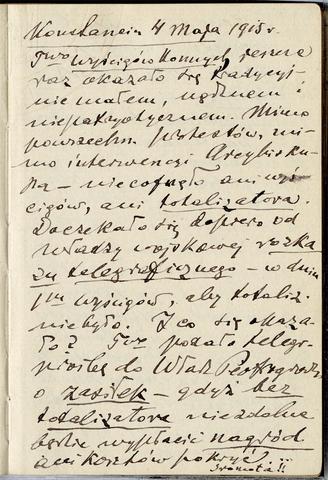 Konstancin 4 Maja 1915 r.
Two wyścigów Konnych, jeszcze
raz okazało się tradycyj-
nie małem, nędznem i
niepatryotycznem. Mimo
powszechn. protestów, mi-
mo interwencyi Arcybisku-
pa – niecofnęło ani wyś-
cigów, ani totalizatora.
Doczekało się dopiero od
władzy wojskowej rozka-
zu telegraficznego – w dniu
1ym wyścigów, aby totaliz.
nie było. I co się okaza-
ło? Two podało telegr.
prośbę do Władz
o zasiłek – gdyż bez
totalizatora niezdolne
będzie wypłacić nagród
ani kosztów pokryć!..
Sromota!!